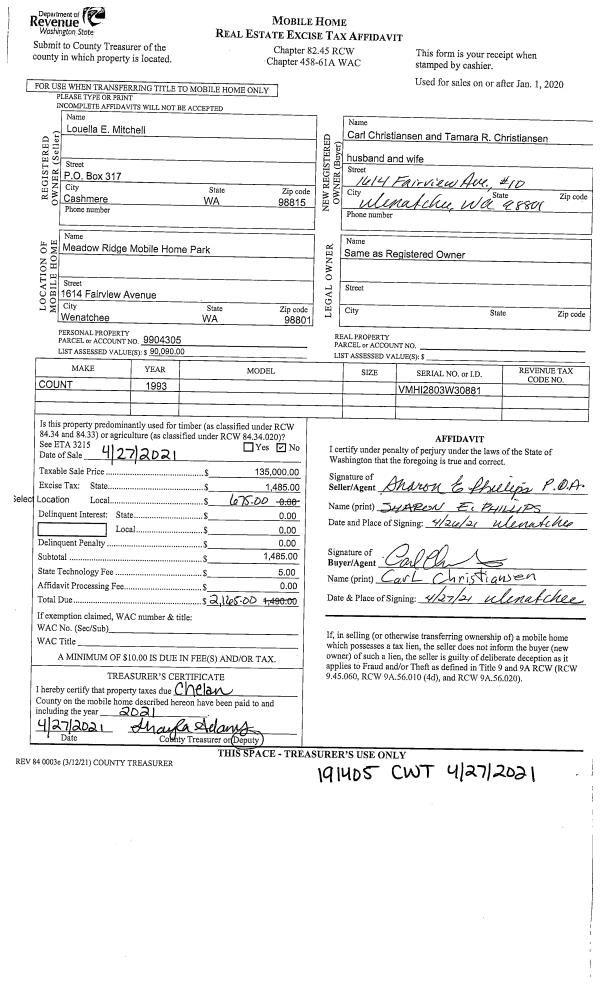 Department of
Revenue
Washington State
Submit to County Treasurer of the
county in which property is located.
MOBILE HOME
REAL ESTATE EXCISE TAX AFFIDAVIT
Chapter 82.45 RCW
Chapter 458-61A WAC
This form is your receipt when
stamped by cashier.
Used for sales on or after Jan. 1, 2020
FOR USE WHEN TRANSFERRING TITLE TO MOBILE HOME ONLY
PLEASE TYPE OR PRINT
INCOMPLETE AFFIDAVITS WILL NOT BE ACCEPTED
REGISTERED
OWNER (Seller)
Name
Louella E. Mitchell
Street
P.O. Box 317
City State Zip code
Cashmere WA 98815
Phone number
NEW REGISTERED
OWNER (Buyer)
Name
Carl Christiansen and Tamara R. Christiansen
husband and wife
Street
1614 Fairview Ave, #10
City State Zip code
Wenatchee, Wa 98801
Phone number
LOCATION OF
MOBILE HOME
Name
Meadow Ridge Mobile Home Park
Street
1614 Fairview Avenue
City State Zip code
Wenatchee WA 98801
LEGAL OWNER
Name
Same as Registered Owner
Street
City State Zip code
PERSONAL PROPERTY
PARCEL or ACCOUNT NO. 9904305
LIST ASSESSED VALUE(S): $ 90,090.00
REAL PROPERTY
PARCEL or ACCOUNT NO.
LIST ASSESSED VALUE(S): $
MAKE YEAR MODEL SIZE SERIAL NO. or I.D. REVENUE TAX
CODE NO.
COUNT 1993 VMHI2803W30881
Is this property predominantly used for timber (as classified under RCW
84.34 and 84.33) or agriculture (as classified under RCW 84.34.020)?
See ETA 3215 Yes No
Date of Sale 4/27/2021
Taxable Sale Price $ 135,000.00
Excise Tax: State $ 1,485.00
Select Location Local $ 675.00 0.00
Delinquent Interest: State $ 0.00
Local $ 0.00
Delinquent Penalty $ 0.00
Subtotal $ 1,485.00
State Technology Fee $ 5.00
Affidavit Processing Fee $ 0.00
Total Due $ 2,165.00 1,490.00
If exemption claimed, WAC number & title:
WAC No. (Sec/Sub)
WAC Title
A MINIMUM OF $10.00 IS DUE IN FEE(S) AND/OR TAX.
TREASURER'S CERTIFICATE
I hereby certify that property taxes due Chelan
County on the mobile home described hereon have been paid to and
including the year 2021
4/27/2021 Shayla Adams
Date County Treasurer or Deputy
AFFIDAVIT
I certify under penalty of perjury under the laws of the State of
Washington that the foregoing is true and correct.
Signature of
Seller/Agent Sharon E Phillips P.O.A.
Name (print) SHARON E. PHILLIPS
Date and Place of Signing: 4/26/21 Wenatchee
Signature of
Buyer/Agent
Name (print) Carl Christiansen
Date & Place of Signing: 4/27/21 Wenatchee
If, in selling (or otherwise transferring ownership of) a mobile home
which possesses a tax lien, the seller does not inform the buyer (new
owner) of such a lien, the seller is guilty of deliberate deception as it
applies to Fraud and/or Theft as defined in Title 9 and 9A RCW (RCW
9.45.060, RCW 9A.56.010 (4d), and RCW 9A.56.020).
THIS SPACE - TREASURER'S USE ONLY
REV 84 0003e (3/12/21) COUNTY TREASURER
191405 CWT 4/27/2021